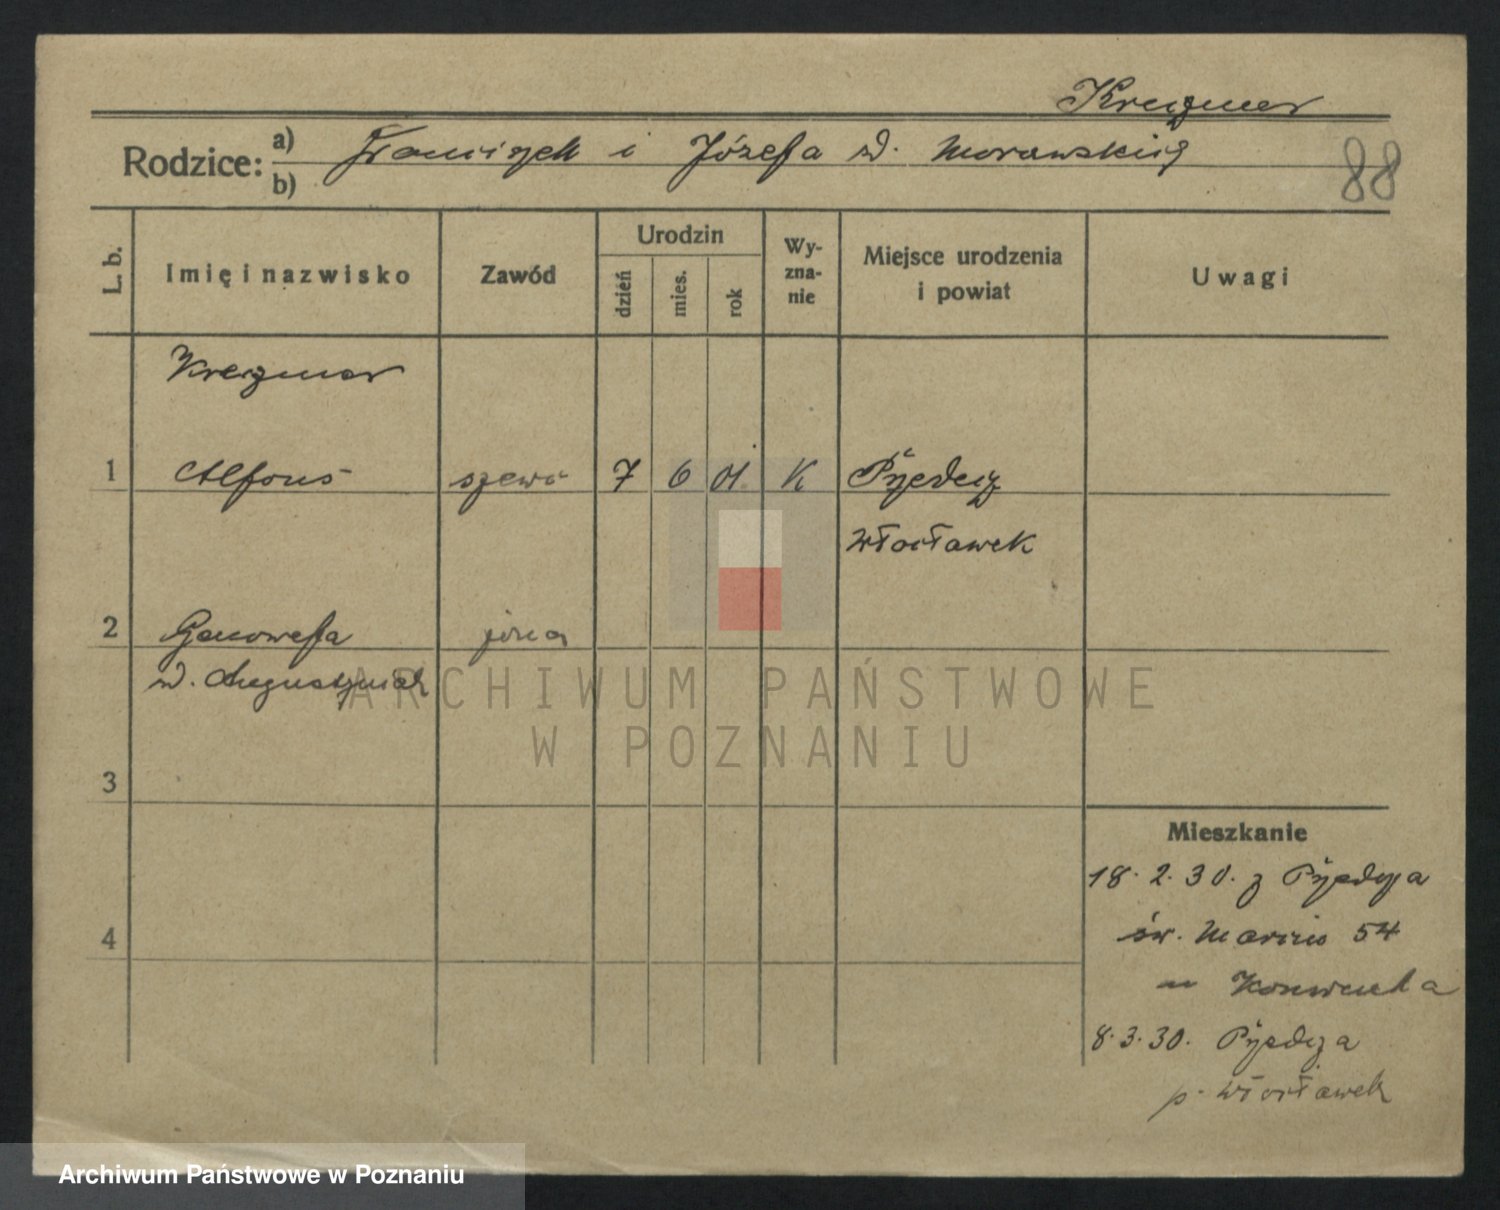 Kreczmer
Rodzice:
a) Franciszek i Józefa d. Morawskich
b)
88
L. b.
Imię i nazwisko
Zawód
Urodzin
dzień
mies.
rok
Wy-
zna-
nie
Miejsce urodzenia
i powiat
Uwagi
Kreczmer
1 Alfons szewc 7 6 01. K Przedecz
Włocławek
2 Genowefa żona
d. Augustyniak
3
4
Mieszkanie
18. 2. 30. z Przedcza
św. Marcin 54
u
8. 3. 30. Przedcza
p. Włocławek
ARCHIWUM PAŃSTWOWE
W POZNANIU
Archiwum Państwowe w Poznaniu